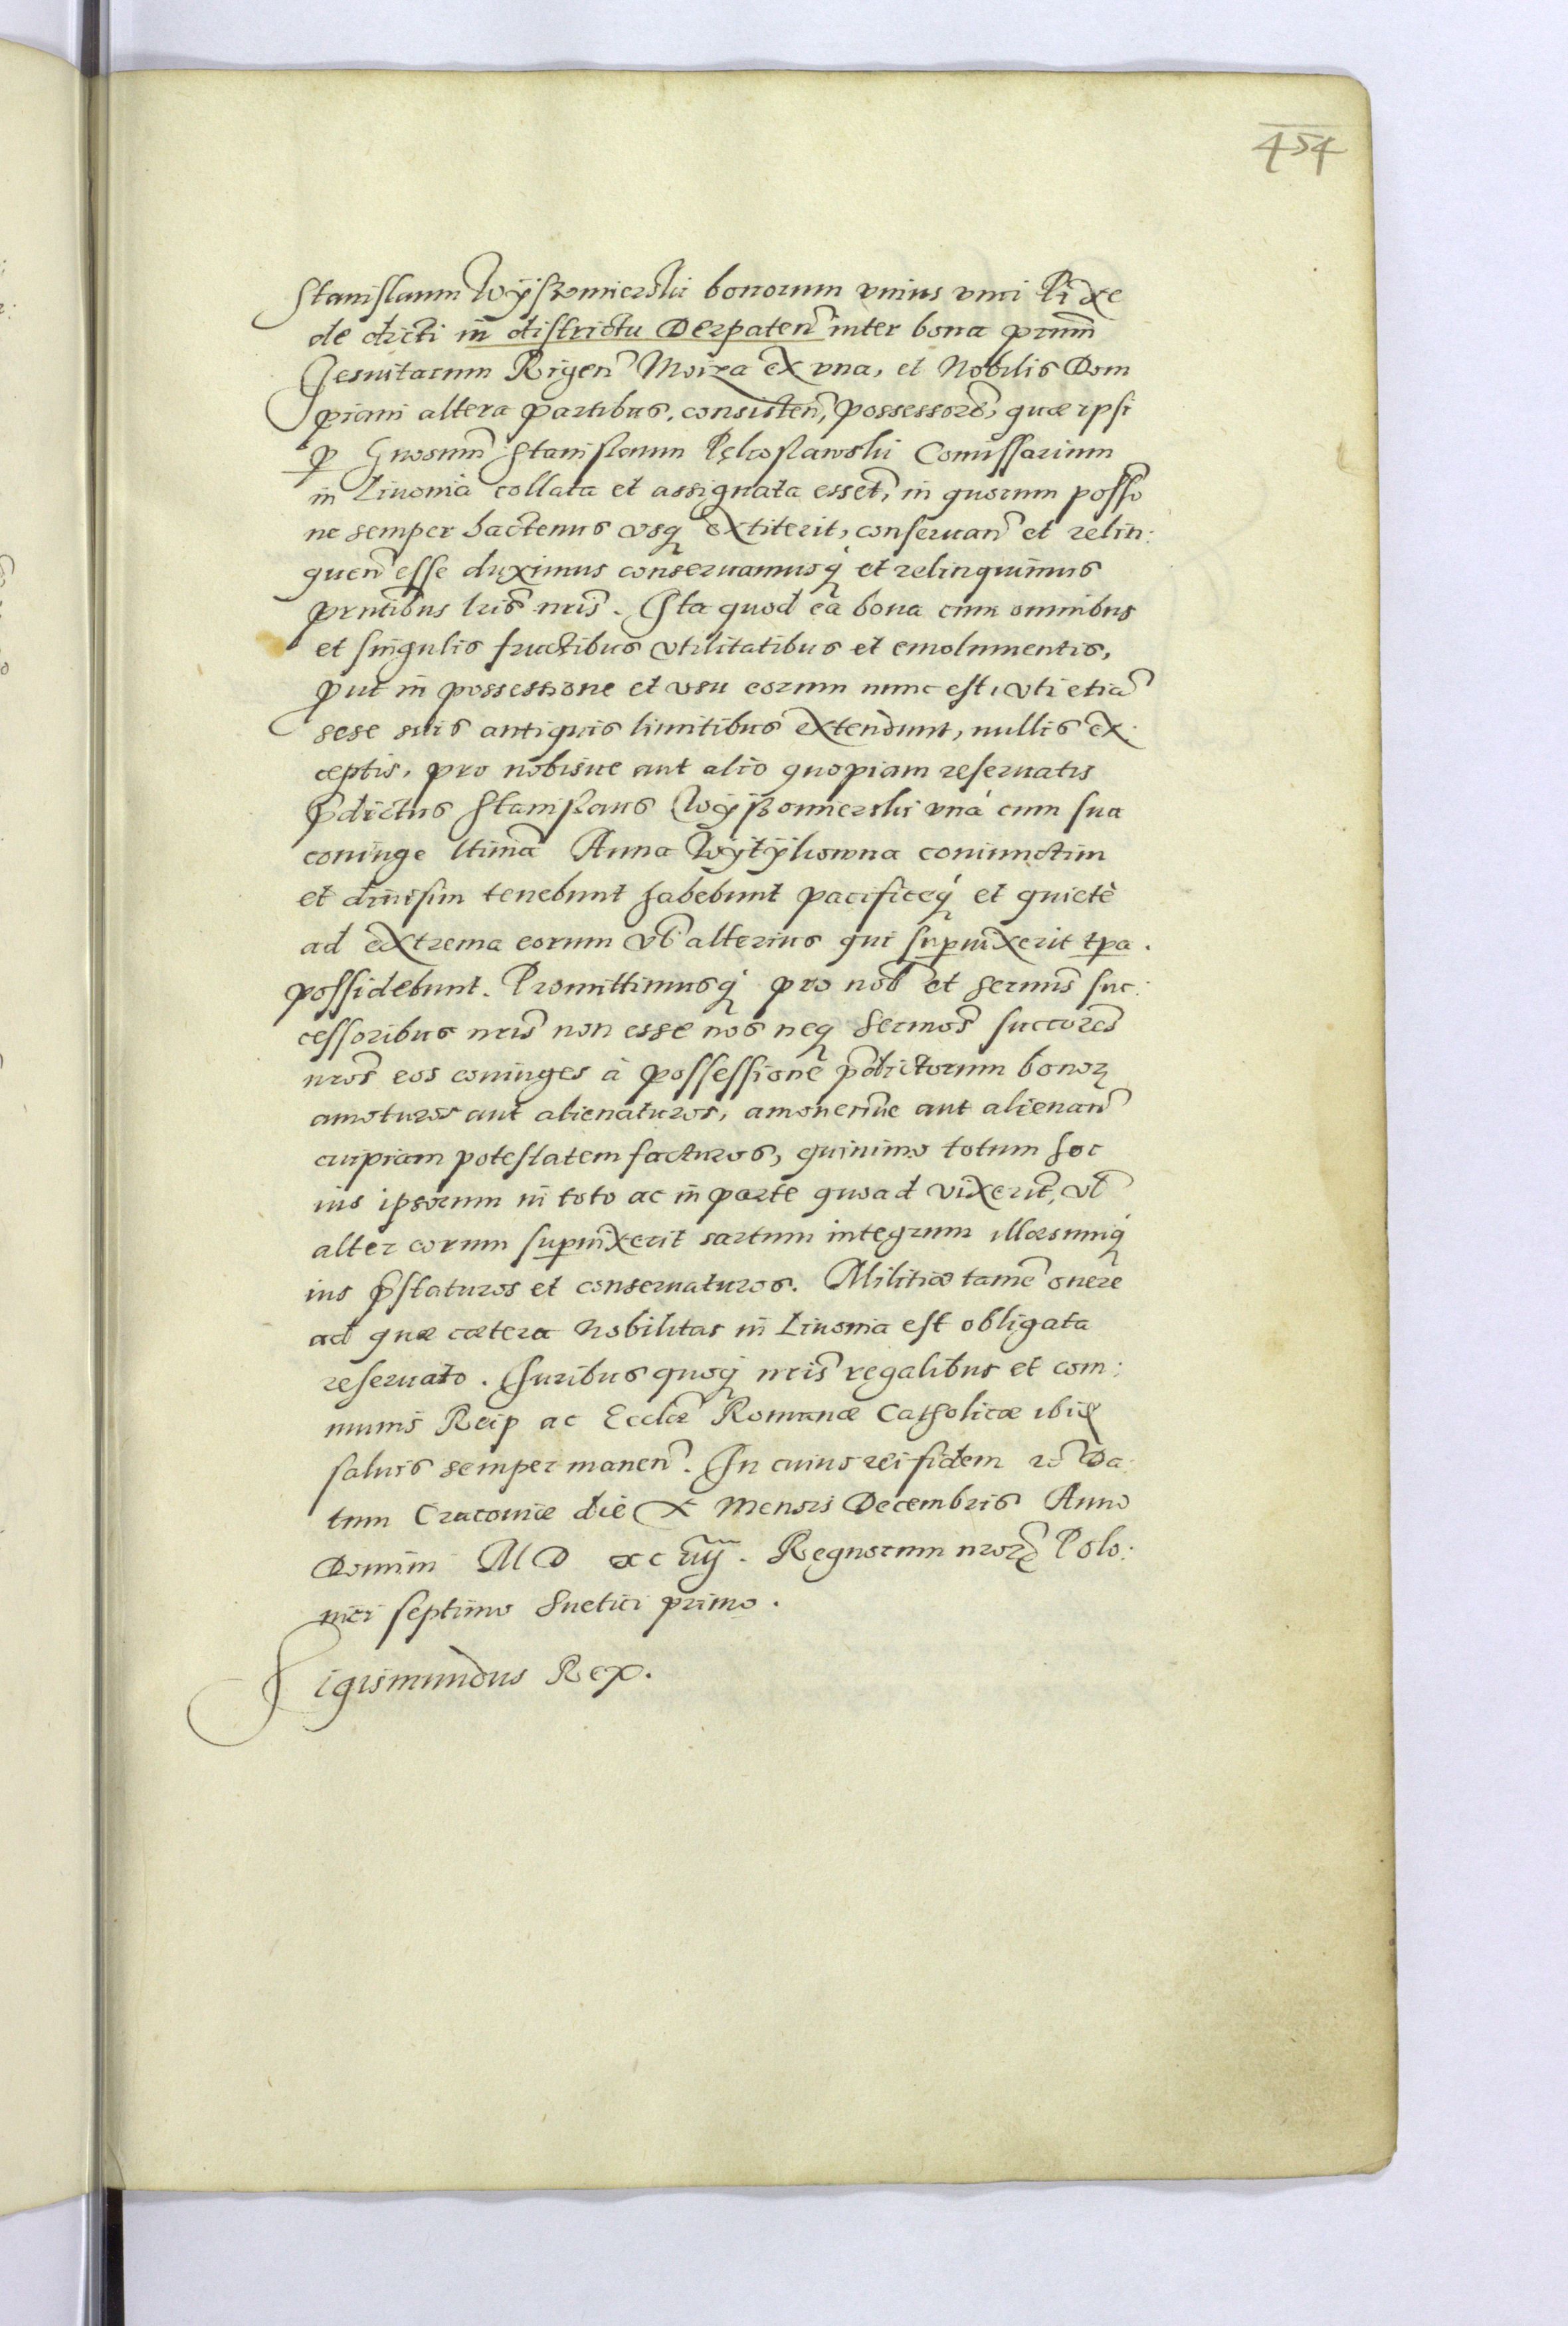 454
Stanislaum Wÿszomierski bonorum vnius vnci Pixe
de dicti in districtu Derpaten̄ inter bona prum̄
Jesuitarum Rigen̄ Moiza ex vna, et Nobilis Dom
piani altera partibus, consisten̄, possessorē, quæ ipsi
p Gnosum̄ Stanislaum Pękoslawski Comissarium
in Liuonia collata et assignata essēt, in quorum posso
ne semper hactenus vsq extiterit, conseruan̄ et relin:
quen̄ esse duximus conseruamusq́ et relinquimus
pn̄tibus lris̄ nris̄. Ita quod ea bona cum omnibus
et singulis fructibus vtilitatibus et emolumentis,
put in possessione et vsu eorum nunc est, vti etiā
sese suis antiquis limitibus extendunt, nullis ex:
ceptis, pro nobisue aut alio quopiam reseruatis
p̄dictus Stanislaus Wÿszomierski vnà cum sua
coniuge ltima Anna Wÿtÿkowna coniunctim
et diuisim tenebunt habebunt pacificeq́ et quietè
ad extrema eorum vl̄ alterius qui supuixerit tpa.
possidebunt. Promittimusq́ pro nob̄ et sermis̄ suc:
cessoribus nris̄ non esse nos neq sermos̄ succores̄
nros̄ eos coniuges à possessione p̄dictorum bonorꝝ
amoturos aut alienaturos, amouendiue aut alienan̄
cuipiam potestatem facturos, quinimo totum hoc
ius ipsorum in toto ac in parte quoad vixerint, vl̄
alter eorum supuixerit sartum integrum illæsumq́
ius p̄staturos et conseruaturos. Militiæ tamē onere
ad quæ cætera Nobilitas in Liuonia est obligata
reseruato. Iuribus quoq́ nris̄ regalibus et com:
munis Reip ac Eccliæ Romanæ Catholicæ ibid
saluis semper manen̄. In cuius rei fidem rō Da:
tum Cracouiæ die X Mensis Decembris Anno
Domini M D XC iiij. Regnorum nrorꝝ Polo:
nici septimo Suetici primo.
Sigismundus Rex.